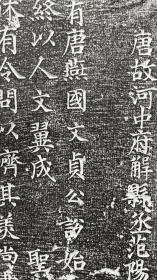 唐故河中府解縣丞范陽
有唐燕國文貞公說始
終以人文翼成　聖
有令問以齊其美尚